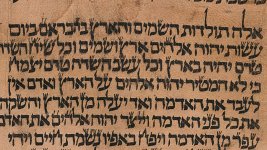 אלה תולדות השמים והארץ בהבראם ביום
עשות יהוה אלהים ארץ ושמים וכל שיח השדה
טרם יהיה בארץ וכל עשב השדה טרם יצמח
כי לא המטיר יהוה אלהים על הארץ ואדם אין
לעבד את האדמה ואד יעלה מן הארץ והשקה
את כל פני האדמה וייצר יהוה אלהים את האדם
עפר מן האדמה ויפח באפיו נשמת חיים ויהי